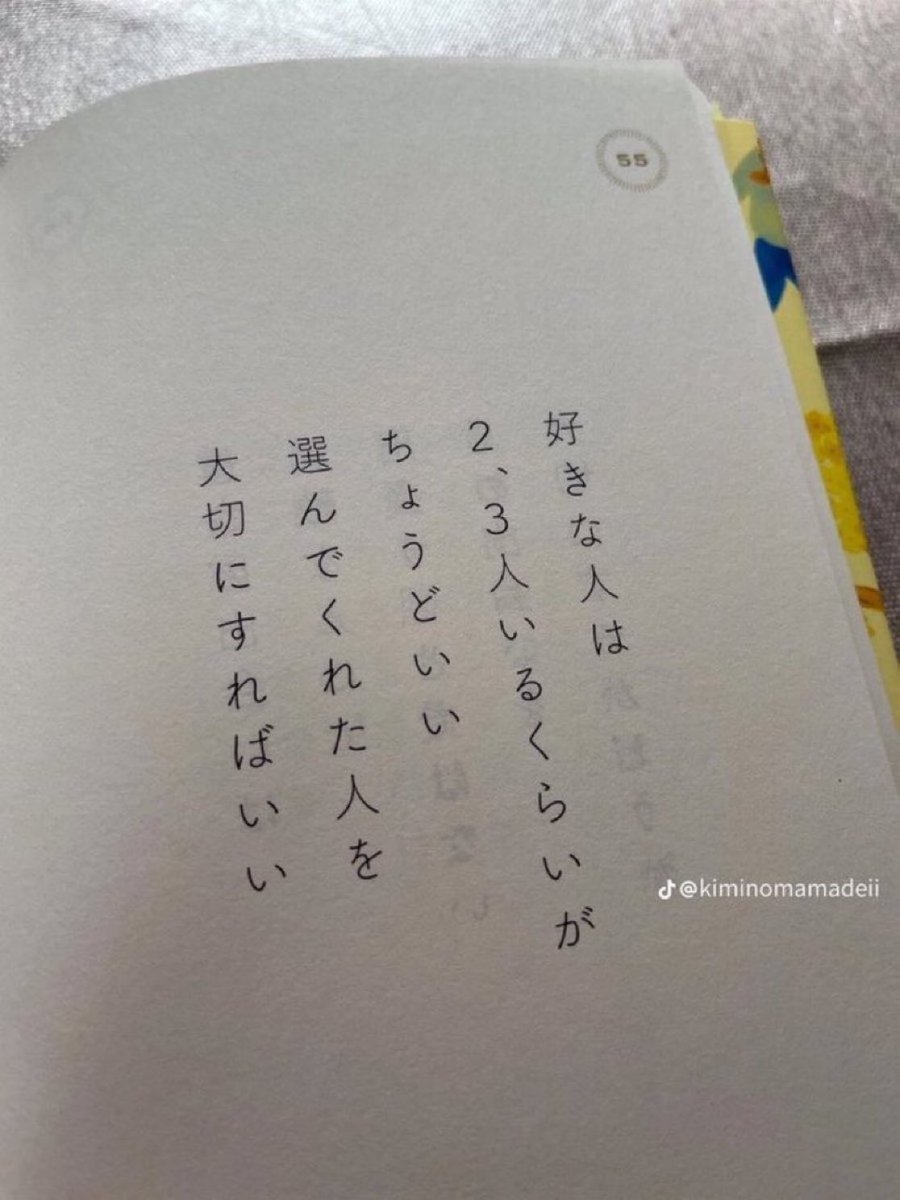 55
好きな人は
2、3人いるくらいが
ちょうどいい
選んでくれた人を
大切にすればいい
@kiminomamadeii